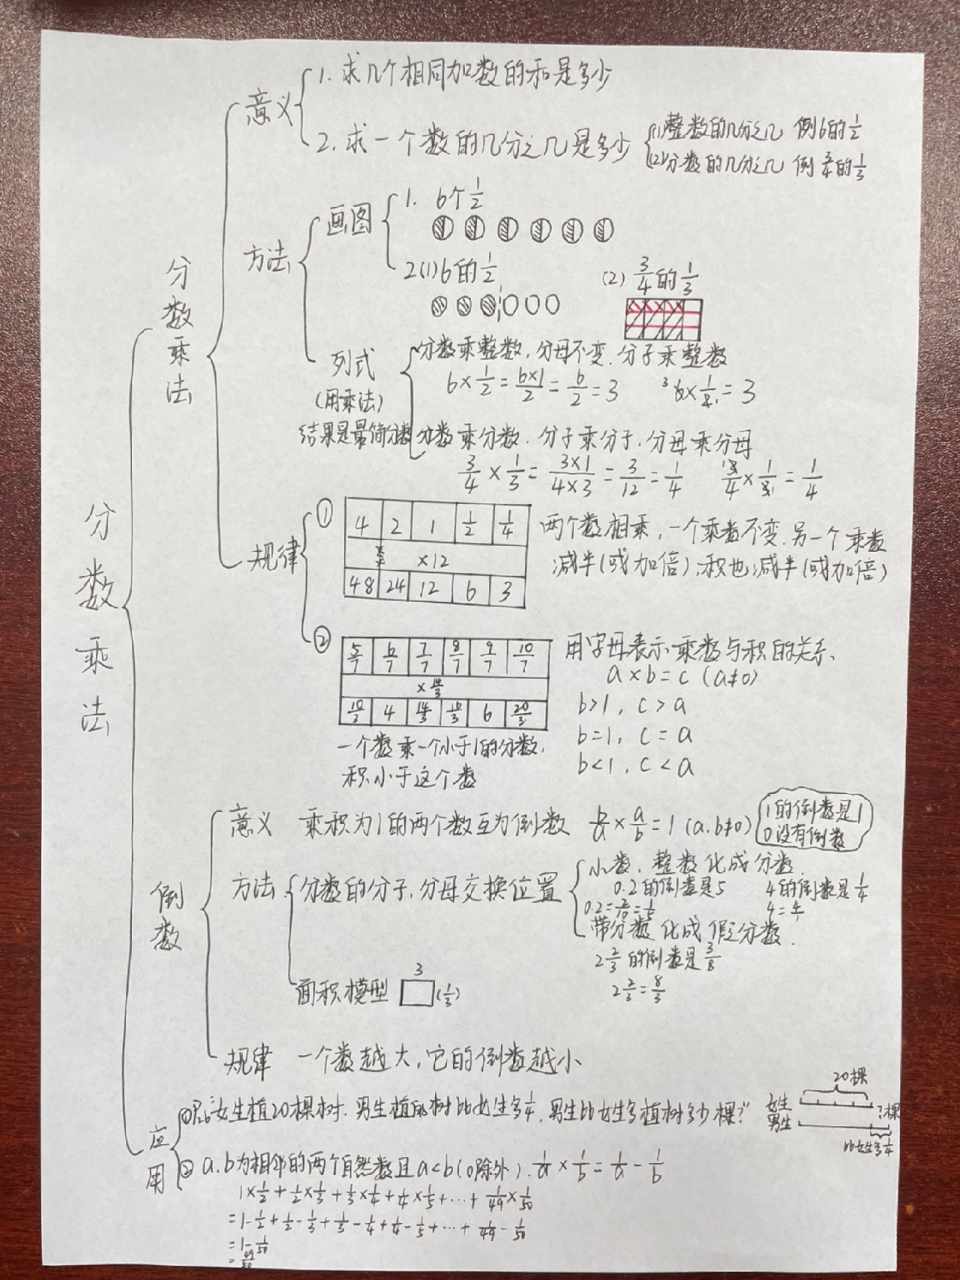 分数乘法
分数乘法
意义
1. 求几个相同加数的和是多少
2. 求一个数的几分之几是多少
(1)整数的几分之几 例6的1/2
(2)分数的几分之几 例3/4的1/3
方法
画图
1. 6个1/2
2(1)6的1/2
(2) 3/4的1/3
列式
(用乘法)
结果是最简分数
分数乘整数，分母不变，分子乘整数
6×1/2=6×1/2=6/2=3
6×1/2=3
分数乘分数，分子乘分子，分母乘分母
3/4×1/3=3×1/4×3=3/12=1/4
3/4×1/3=1/4
规律
①
4 2 1 1/2 1/4
×12
48 24 12 6 3
两个数相乘，一个乘数不变，另一个乘数
减半(或加倍)积也减半(或加倍)
②
5/7 6/7 7/7 8/7 9/7 10/7
10/3 4 14/3 6 20/3
一个数乘一个小于1的分数，
积小于这个数
用字母表示乘数与积的关系
a×b=c (a≠0)
b>1, c>a
b=1, c=a
b<1, c<a
倒数
意义 乘积为1的两个数互为倒数 b/a×a/b=1 (a.b≠0)
1的倒数是1
0没有倒数
方法
分数的分子,分母交换位置
小数，整数化成分数
0.2的倒数是5 4的倒数是1/4
0.2=2/10=1/5 4=4/1
带分数化成假分数.
2 2/3的倒数是3/8
2 2/3=8/3
面积模型 3 (1/3)
规律 一个数越大，它的倒数越小
应用
女生植20棵树，男生植的树比女生多1/4，男生比女生多植树多少棵?
20棵
女生
男生
?棵
比女生多1/4
② a.b为相邻的两个自然数且a<b(0除外).1/a×1/b=1/a-1/b
1×1/2+1/2×1/3+1/3×1/4+1/4×1/5+…+1/49×1/50
=1-1/2+1/2-1/3+1/3-1/4+1/4-1/5+…+1/49-1/50
=1-1/50
=49/50